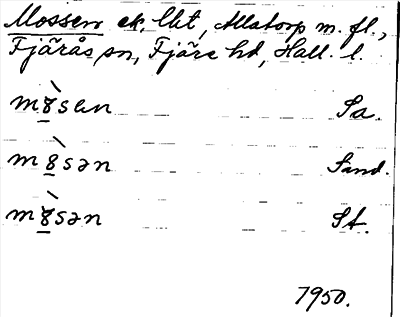 Mossen ek. lht, Allatorp m. fl.,
Fjärås sn, Fjäre hd, Hall. l.
mò̱sen Sa.
mò̱sən Sand.
mò̱sən St.
1950.